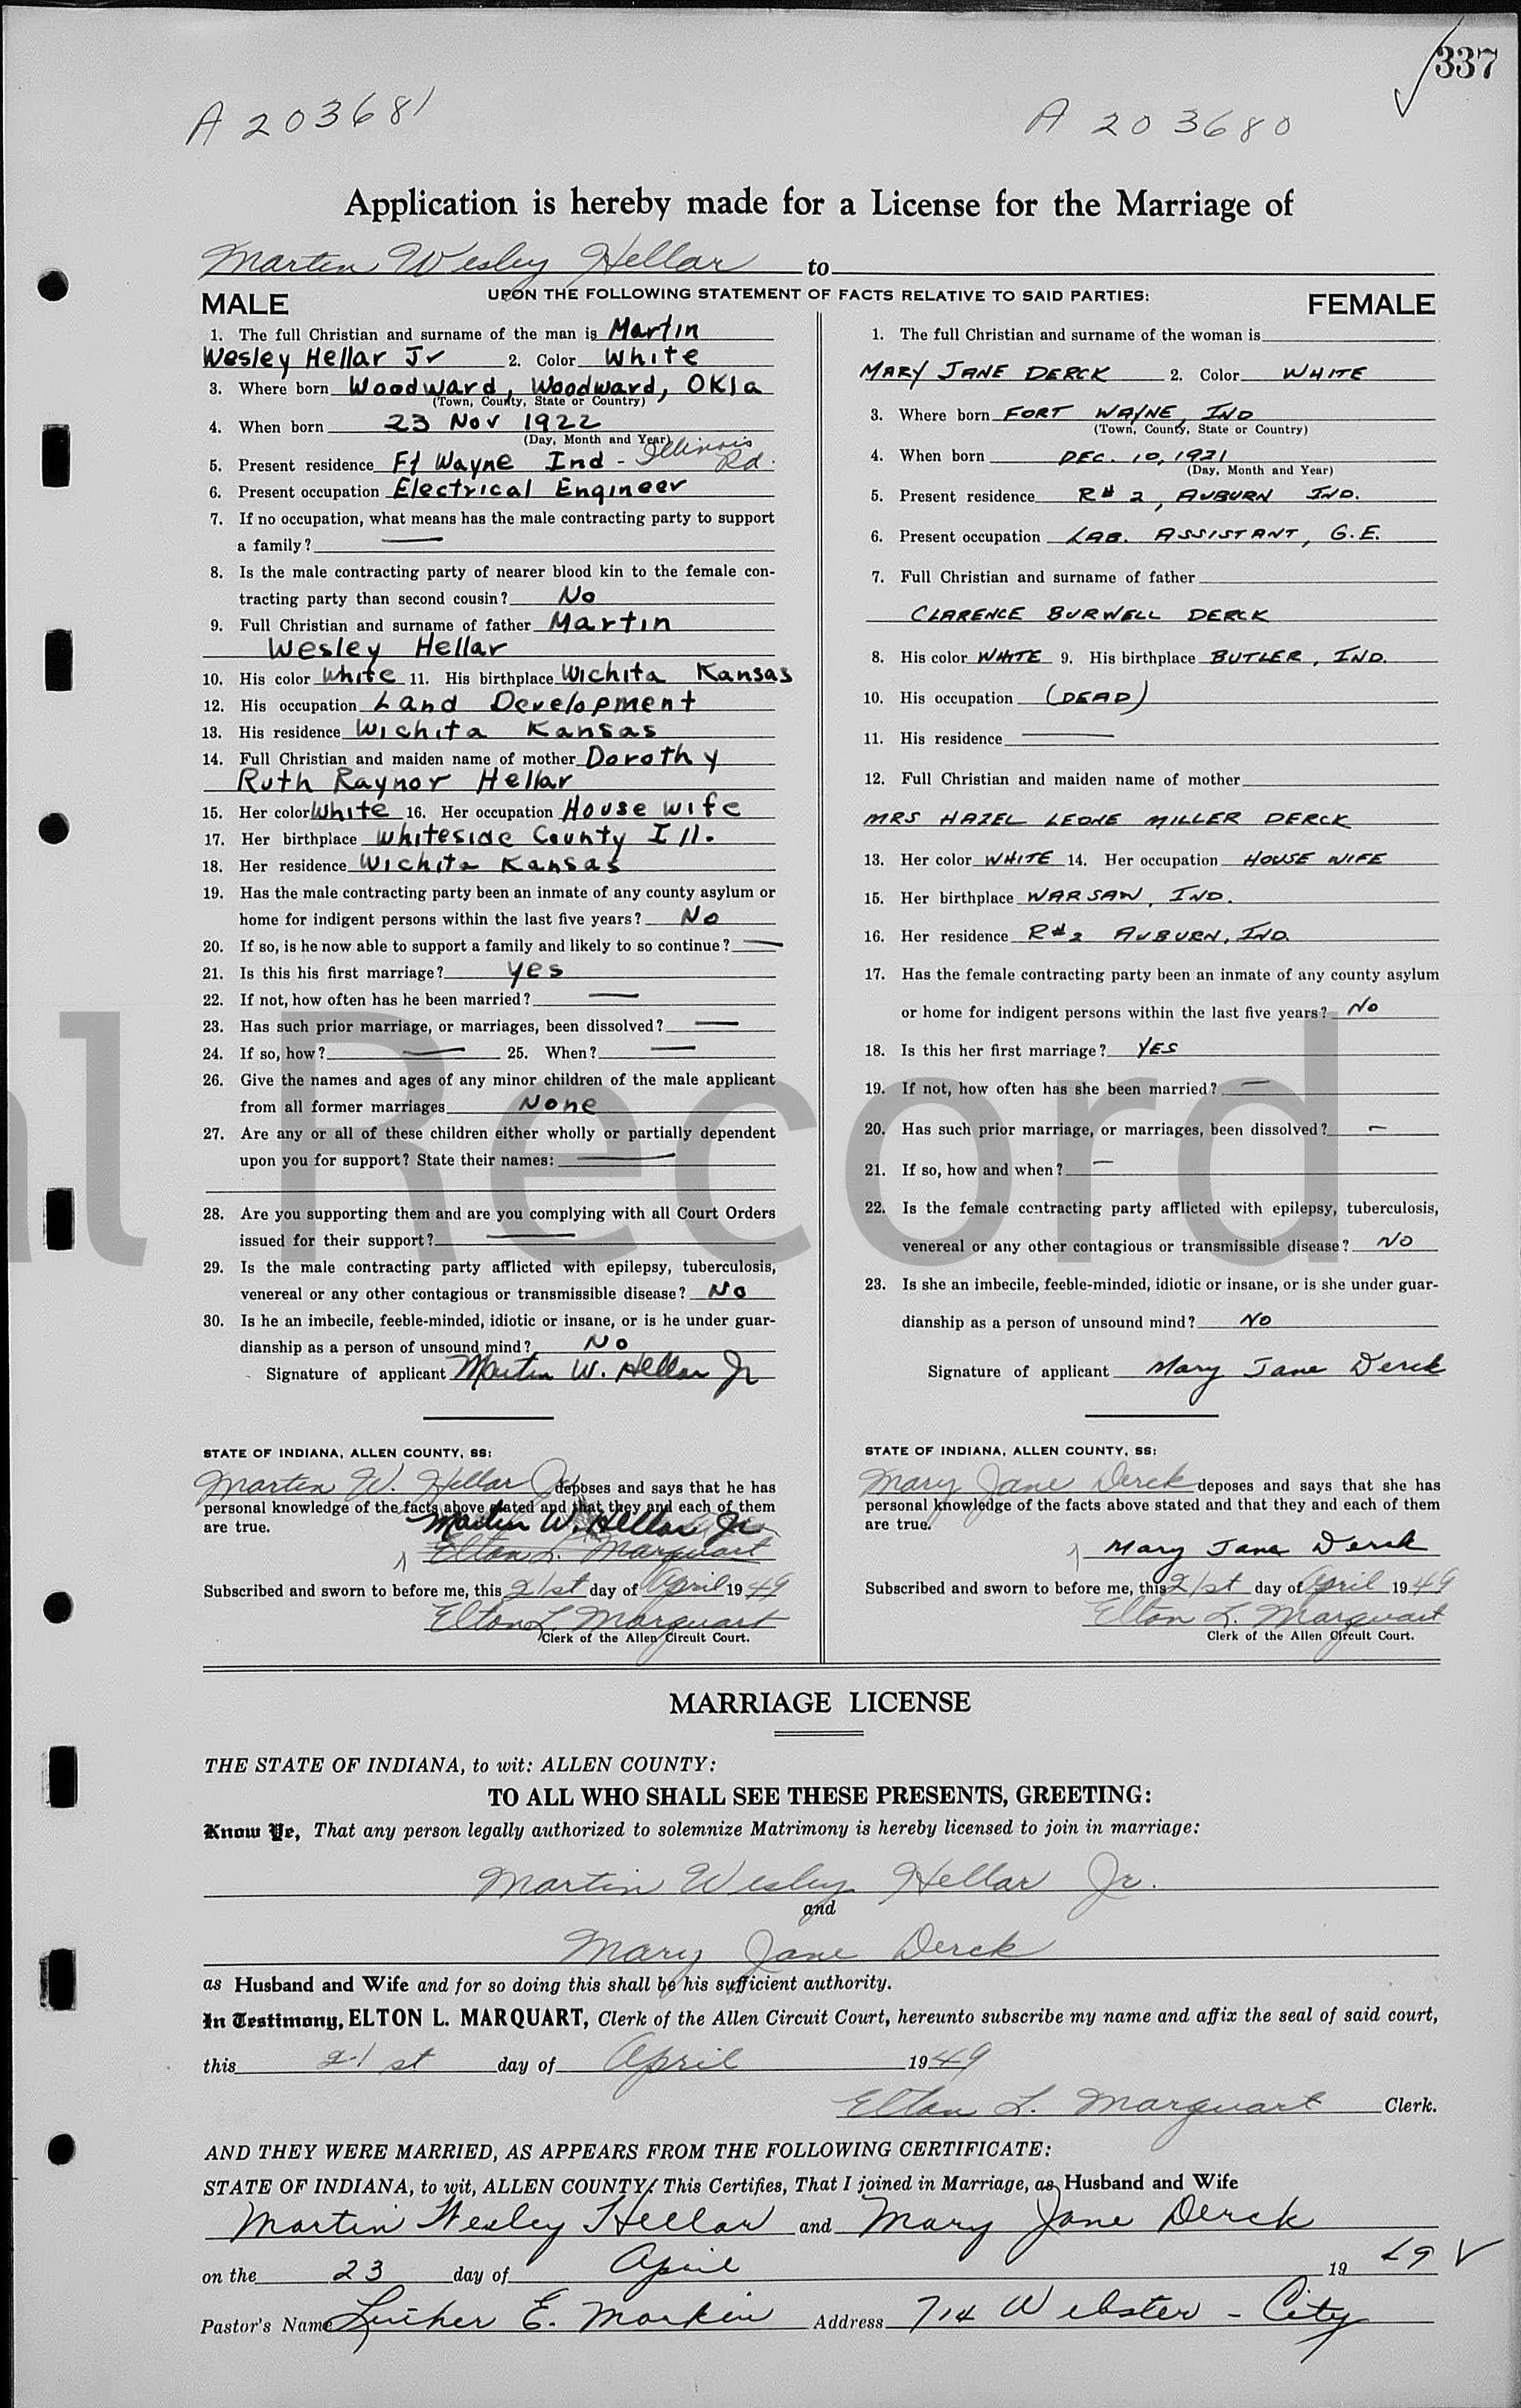 337
A 203681 A 203680
Application is hereby made for a License for the Marriage of
Martin Wesley Hellar to
UPON THE FOLLOWING STATEMENT OF FACTS RELATIVE TO SAID PARTIES:
MALE
1. The full Christian and surname of the man is Martin
Wesley Hellar Jr 2. Color White
3. Where born Woodward, Woodward, Okla
(Town, County, State or Country)
4. When born 23 Nov 1922
(Day, Month and Year)
5. Present residence Ft Wayne Ind - Illinois Rd.
6. Present occupation Electrical Engineer
7. If no occupation, what means has the male contracting party to support
a family? —
8. Is the male contracting party of nearer blood kin to the female con-
tracting party than second cousin? No
9. Full Christian and surname of father Martin
Wesley Hellar
10. His color White 11. His birthplace Wichita Kansas
12. His occupation Land Development
13. His residence Wichita Kansas
14. Full Christian and maiden name of mother Dorothy
Ruth Raynor Hellar
15. Her color White 16. Her occupation House wife
17. Her birthplace Whiteside County Ill.
18. Her residence Wichita Kansas
19. Has the male contracting party been an inmate of any county asylum or
home for indigent persons within the last five years? No
20. If so, is he now able to support a family and likely to so continue? —
21. Is this his first marriage? yes
22. If not, how often has he been married? —
23. Has such prior marriage, or marriages, been dissolved? —
24. If so, how? — 25. When? —
26. Give the names and ages of any minor children of the male applicant
from all former marriages None
27. Are any or all of these children either wholly or partially dependent
upon you for support? State their names: —
28. Are you supporting them and are you complying with all Court Orders
issued for their support? —
29. Is the male contracting party afflicted with epilepsy, tuberculosis,
venereal or any other contagious or transmissible disease? No
30. Is he an imbecile, feeble-minded, idiotic or insane, or is he under guar-
dianship as a person of unsound mind? No
Signature of applicant Martin W. Hellar Jr
STATE OF INDIANA, ALLEN COUNTY, SS:
Martin W. Hellar Jr deposes and says that he has
personal knowledge of the facts above stated and that they and each of them
are true. Martin W. Hellar Jr
Elton L. Marquart
Subscribed and sworn to before me, this 21st day of April 1949
Elton L. Marquart
Clerk of the Allen Circuit Court.
FEMALE
1. The full Christian and surname of the woman is
MARY JANE DERCK 2. Color WHITE
3. Where born FORT WAYNE, IND
(Town, County, State or Country)
4. When born DEC. 10, 1921
(Day, Month and Year)
5. Present residence R# 2, AUBURN IND.
6. Present occupation LAB. ASSISTANT, G.E.
7. Full Christian and surname of father
CLARENCE BURWELL DERCK
8. His color WHITE 9. His birthplace BUTLER, IND.
10. His occupation (DEAD)
11. His residence —
12. Full Christian and maiden name of mother
MRS HAZEL LEONE MILLER DERCK
13. Her color WHITE 14. Her occupation HOUSE WIFE
15. Her birthplace WARSAW, IND.
16. Her residence R#2 AUBURN, IND.
17. Has the female contracting party been an inmate of any county asylum
or home for indigent persons within the last five years? No
18. Is this her first marriage? YES
19. If not, how often has she been married? —
20. Has such prior marriage, or marriages, been dissolved? —
21. If so, how and when? —
22. Is the female contracting party afflicted with epilepsy, tuberculosis,
venereal or any other contagious or transmissible disease? NO
23. Is she an imbecile, feeble-minded, idiotic or insane, or is she under guar-
dianship as a person of unsound mind? NO
Signature of applicant Mary Jane Derck
STATE OF INDIANA, ALLEN COUNTY, SS:
Mary Jane Derck deposes and says that she has
personal knowledge of the facts above stated and that they and each of them
are true.
Mary Jane Derck
Subscribed and sworn to before me, this 21st day of April 1949
Elton L. Marquart
Clerk of the Allen Circuit Court.
l Record
MARRIAGE LICENSE
THE STATE OF INDIANA, to wit: ALLEN COUNTY:
TO ALL WHO SHALL SEE THESE PRESENTS, GREETING:
Know Ye, That any person legally authorized to solemnize Matrimony is hereby licensed to join in marriage:
Martin Wesley Hellar Jr.
and
Mary Jane Derck
as Husband and Wife and for so doing this shall be his sufficient authority.
In Testimony, ELTON L. MARQUART, Clerk of the Allen Circuit Court, hereunto subscribe my name and affix the seal of said court,
this 21st day of April 1949
Elton L. Marquart Clerk.
AND THEY WERE MARRIED, AS APPEARS FROM THE FOLLOWING CERTIFICATE:
STATE OF INDIANA, to wit, ALLEN COUNTY: This Certifies, That I joined in Marriage, as Husband and Wife
Martin Wesley Hellar and Mary Jane Derck
on the 23 day of April 1949
Pastor's Name Luther E. Markin Address 714 Webster - City